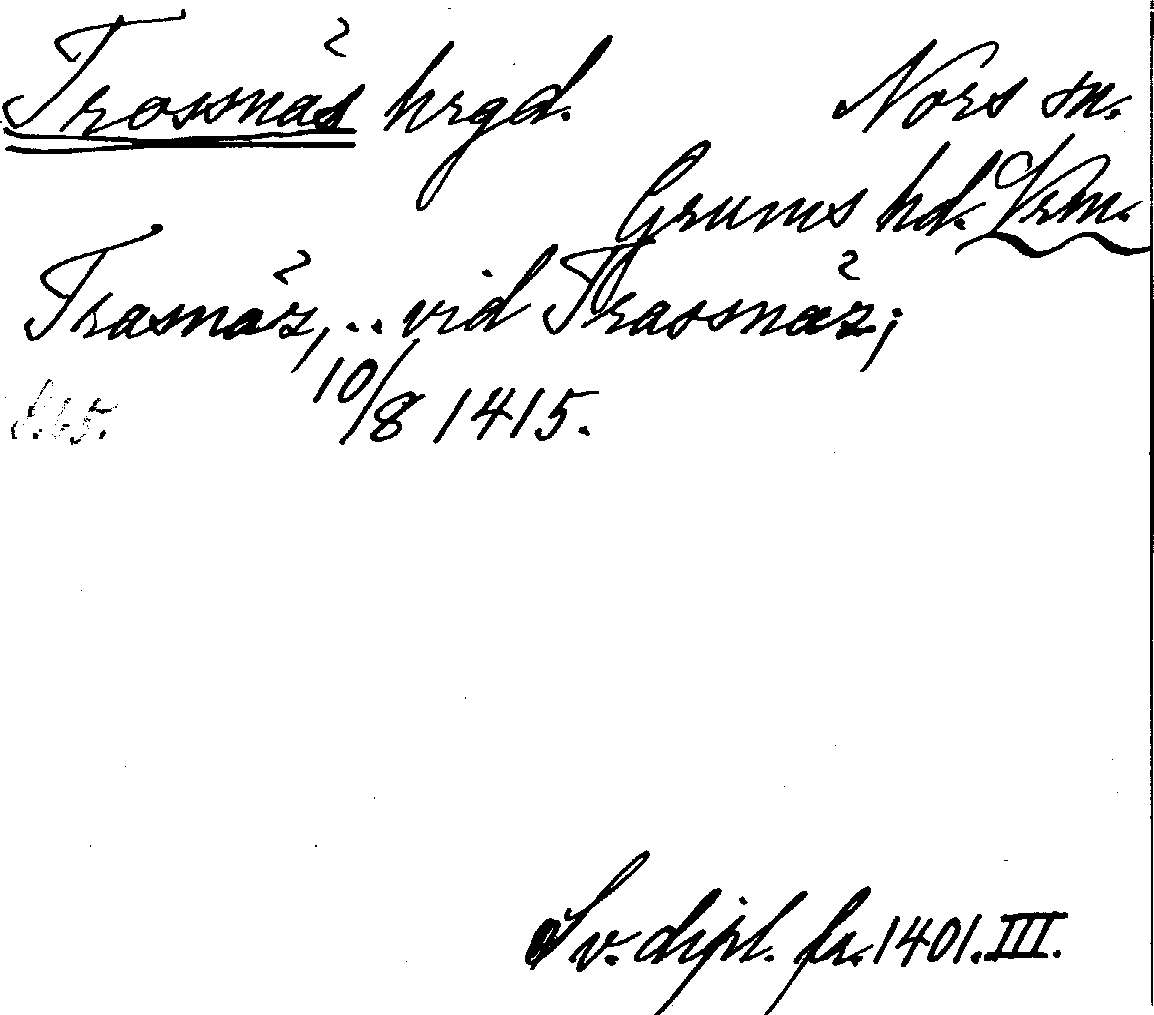 Trossnäs hrgd. Nors sn.
Grums hd. Vrm.
Trasnäz, .. vid Trassnäz;
10/8 1415.
Sv. dipl. fr. 1401. III.